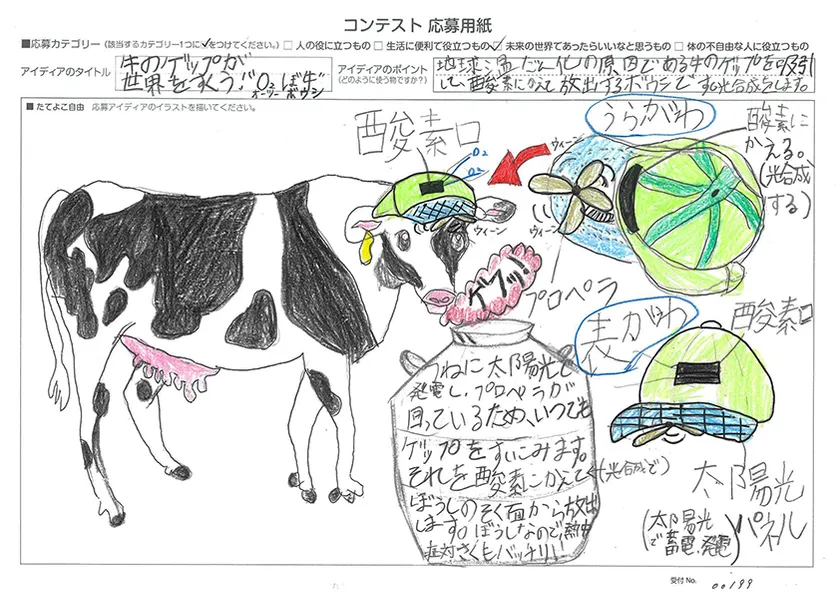 コンテスト 応募用紙
■応募カテゴリー (該当するカテゴリー1つに✓をつけてください。) □ 人の役に立つもの □ 生活に便利で役立つもの ☑ 未来の世界であったらいいなと思うもの □ 体の不自由な人に役立つもの
アイディアのタイトル
牛のゲップが
世界を救う!! O₂ぼ牛
オーツー ボウシ
アイディアのポイント
(どのように使う物ですか?)
地球温だん化の原因である牛のゲップを吸引
して、酸素にかえて放出するボウシです。光合成もします。
■ たてよこ自由 応募アイディアのイラストを描いてください。
酸素口
O2
O2
ウィーン
ゲフッ!
うらがわ
ウィーン
ウィーン
酸素に
かえる。
(光合成
する)
プロペラ
表がわ
酸素口
太陽光
パネル
(太陽光
で蓄電、発電)
つねに太陽光で
発電し、プロペラが
回っているため、いつでも
ゲップをすいこみます。
それを酸素にかえて(光合成で)
ぼうしのそく面から放出
します。ぼうしなので、熱中
症対さくもバッチリ!
受付No. 00199